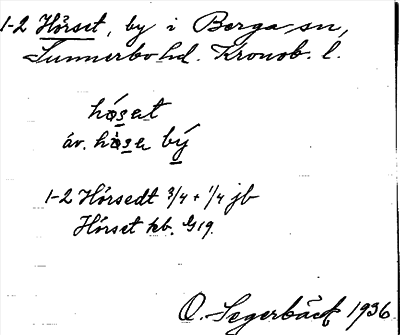 1-2 Hörset, by i Berga sn,
Sunnerbo hd. Kronob. l.
hó̤set
äv. bý
1-2 Hörsedt 3/4 + 1/4 jb
Hörset kb. G19.
O. Segerbäck 1936